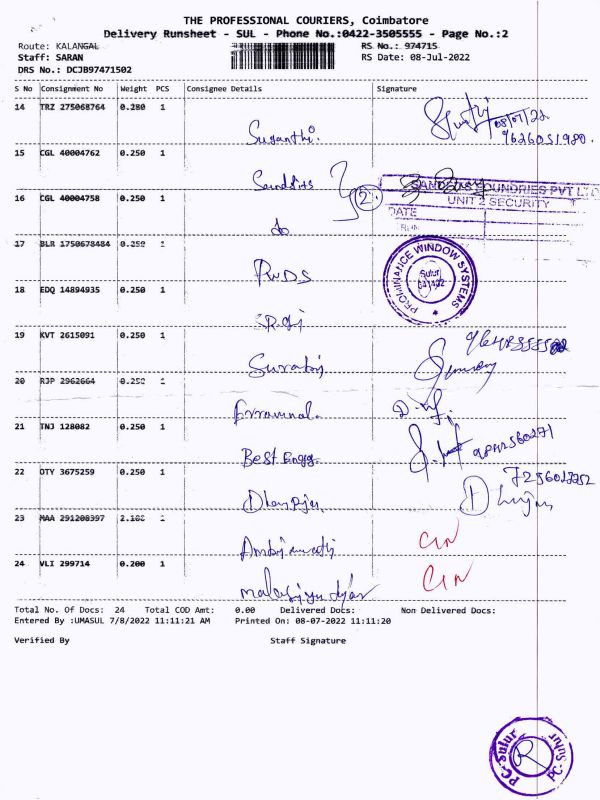 THE PROFESSIONAL COURIERS, Coimbatore
Delivery Runsheet - SUL - Phone No.:0422-3505555 - Page No.:2
Route: KALANGAL
RS No.: 974715
Staff: SARAN
RS Date: 08-Jul-2022
DRS No.: DCJB97471502
S No Consignment No Weight PCS Consignee Details Signature
14 TRZ 275068764 0.280 1
08/07/22
Suganthi.
9626051980.
15 CGL 40004762 0.250 1
16 CGL 40004758 0.250 1
2
FOUNDRIES PVT LTD
UNIT 2 SECURITY
DATE
do
17 BLR 1750678484 0.250 1
PWDS
PROMINANCE WINDOW SYSTEMS
Sulur
641402
18 EDQ 14894935 0.250 1
19 KVT 2615091 0.250 1
20 RJP 2962664 0.250 1
21 TNJ 128082 0.250 1
Best Engg.
22 OTY 3675259 0.250 1
23 MAA 291208397 2.100 1
24 VLI 299714 0.200 1
Total No. Of Docs: 24 Total COD Amt: 0.00 Delivered Docs: Non Delivered Docs:
Entered By :UMASUL 7/8/2022 11:11:21 AM Printed On: 08-07-2022 11:11:20
Verified By Staff Signature
PC-Sulur
PC-Sulur